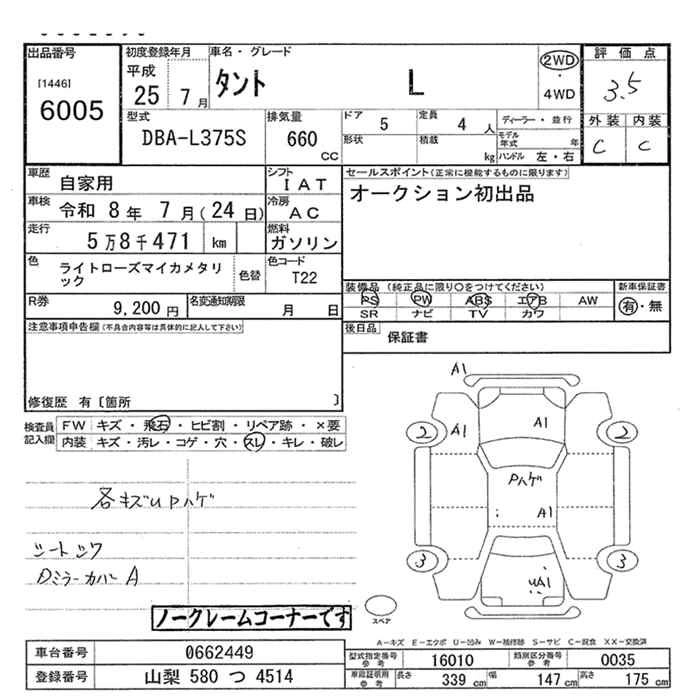 出品番号
[1446]
6005
初度登録年月
平成
25 7月
車名・グレード
タント L
2WD
・
4WD
評価点
3.5
外装 内装
C C
型式
DBA-L375S
排気量
660
cc
ドア
5
定員
4 人
形状
積載
kg
ディーラー・並行
モデル
年式 年
ハンドル 左・右
車歴
自家用
シフト
IAT
車検
令和 8年 7月(24日)
冷房
AC
走行
5万8千471 km
燃料
ガソリン
色
ライトローズマイカメタリ
ック
色替
色コード
T22
R券
9,200円
名変通知期限
月 日
セールスポイント(正常に機能するものに限ります)
オークション初出品
装備品 (純正品に限り〇をつけてください)
PS PW ABS エアB AW
SR ナビ TV カワ
新車保証書
有・無
後日品
保証書
注意事項申告欄(不具合内容等は具体的に記入して下さい)
修復歴 有〔箇所 〕
検査員
記入欄
FW キズ・飛石・ヒビ割・リペア跡・×要
内装 キズ・汚レ・コゲ・穴・スレ・キレ・破レ
各キズUPハゲ
シートシワ
Dミラーカバー A
ノークレームコーナーです
A1
A1
A1
2
2
Pハゲ
A1
3
3
UA1
スペア
A-キズ E-エクボ U-凹み W-補修跡 S-サビ C-腐食 XX-交換済
車台番号
0662449
登録番号
山梨 580 つ 4514
型式指定番号
参考
16010
類別区分番号
参考
0035
車庫証明用
参考
長さ
339 cm
幅
147 cm
高さ
175 cm